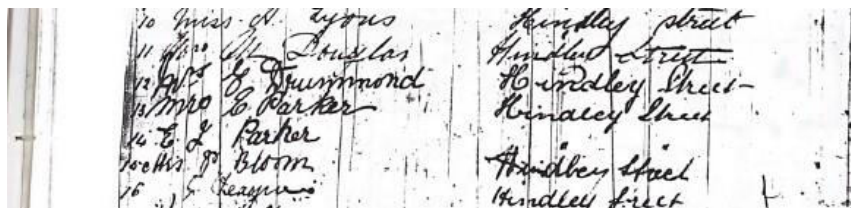 10 Miss A. Lyons Hindley street
11 Mrs M Douglas Hindley Street
12 Mrs E Drummond Hindley Street
13 Mrs E Parker Hindley Street
14 E J Parker "
15 Mrs Bloom Hindley Street
16 Hindley Street